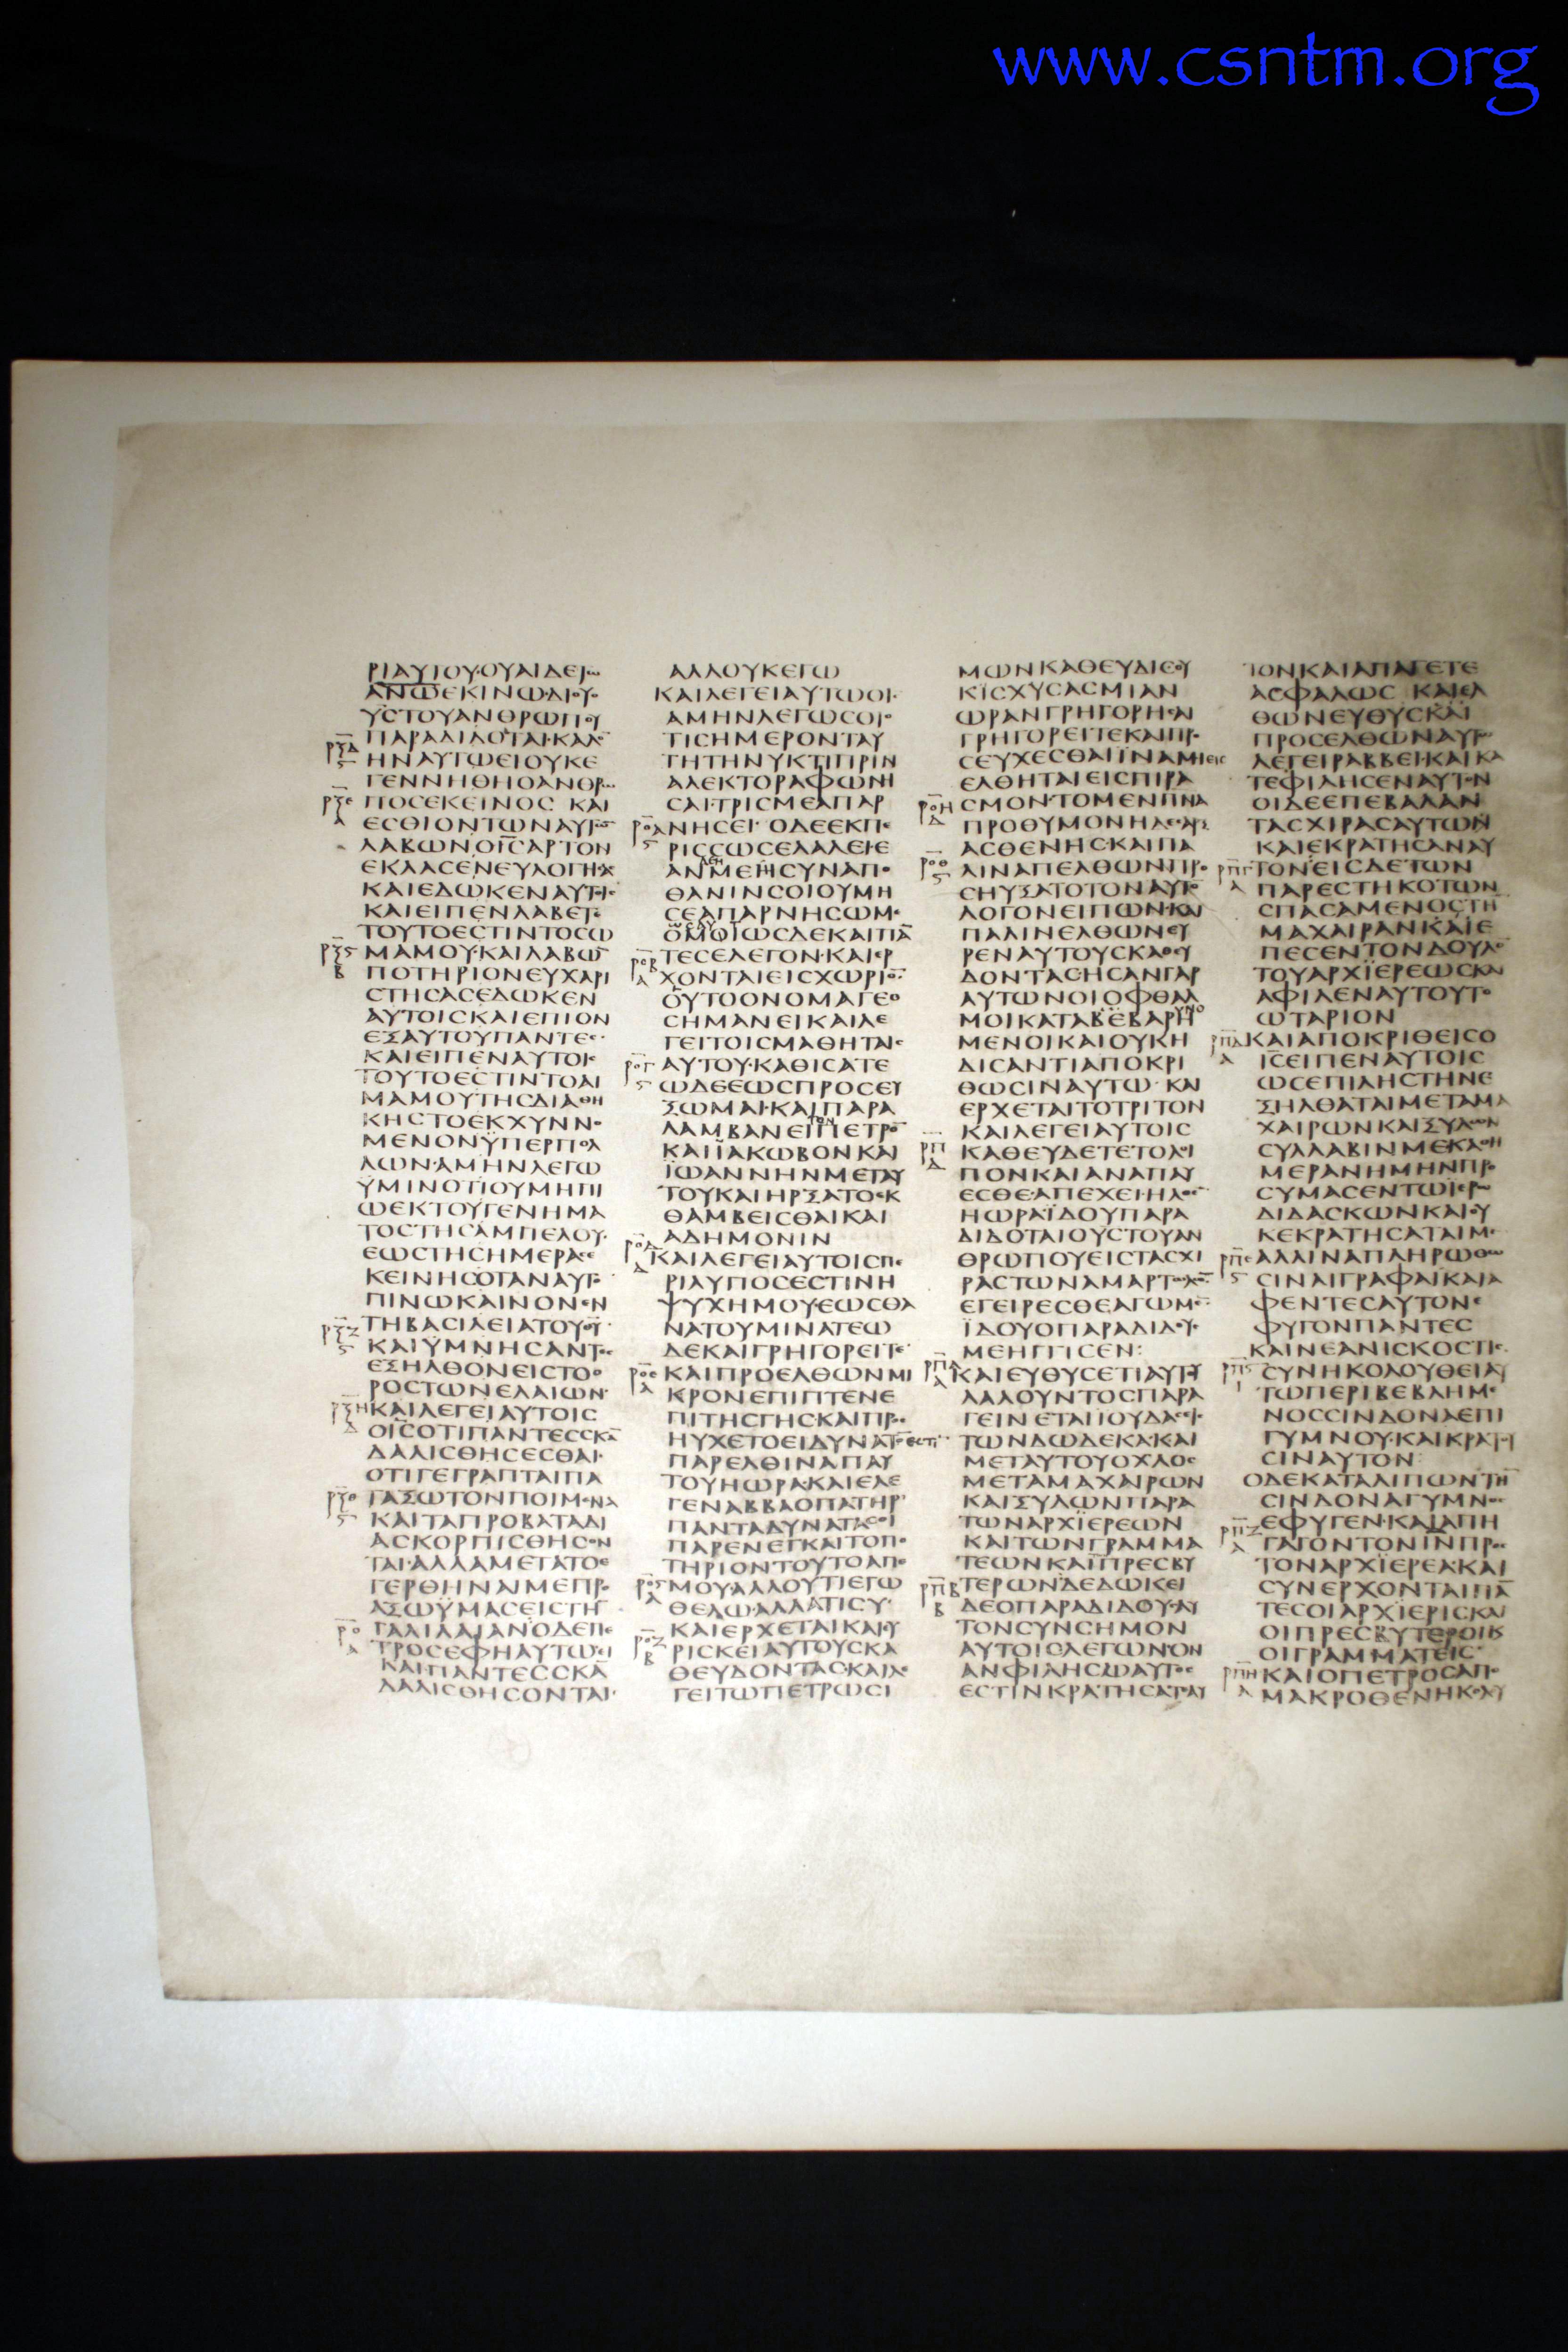 www.csntm.org
ΡΙΑΥΤΟΥ·ΟΥΑΙΔΕΤΩ
ΑΝΩΕΚΙΝΩΔΙΟΥ
ΥΣΤΟΥΑΝΘΡΩΠΟΥ
ΠΑΡΑΔΙΔΟΤΑΙ·ΚΑΛΟ
ΗΝΑΥΤΩΕΙΟΥΚΕ
ΓΕΝΝΗΘΗΟΑΝΘΡΩ
ΠΟΣΕΚΕΙΝΟΣ ΚΑΙ
ΕΣΘΙΟΝΤΩΝΑΥΤΩ
ΛΑΒΩΝΟΙΣΑΡΤΟΝ
ΕΚΛΑΣΕΝΕΥΛΟΓΗΣΑΣ
ΚΑΙΕΔΩΚΕΝΑΥΤΟΙΣ
ΚΑΙΕΙΠΕΝΛΑΒΕΤΕ
ΤΟΥΤΟΕΣΤΙΝΤΟΣΩ
ΜΑΜΟΥ·ΚΑΙΛΑΒΩ
ΠΟΤΗΡΙΟΝΕΥΧΑΡΙ
ΣΤΗΣΑΣΕΔΩΚΕΝ
ΑΥΤΟΙΣΚΑΙΕΠΙΟΝ
ΕΞΑΥΤΟΥΠΑΝΤΕΣ
ΚΑΙΕΙΠΕΝΑΥΤΟΙΣ
ΤΟΥΤΟΕΣΤΙΝΤΟΑΙ
ΜΑΜΟΥΤΗΣΔΙΑΘΗ
ΚΗΣΤΟΕΚΧΥΝΝΟ
ΜΕΝΟΝΫΠΕΡΠΟΛ
ΛΩΝ·ΑΜΗΝΛΕΓΩ
ΫΜΙΝΟΤΙΟΥΜΗΠΙ
ΩΕΚΤΟΥΓΕΝΗΜΑ
ΤΟΣΤΗΣΑΜΠΕΛΟΥ
ΕΩΣΤΗΣΗΜΕΡΑΣΕ
ΚΕΙΝΗΣΟΤΑΝΑΥΤΟ
ΠΙΝΩΚΑΙΝΟΝΕΝ
ΤΗΒΑΣΙΛΕΙΑΤΟΥΘΥ
ΚΑΙΫΜΝΗΣΑΝΤΕΣ
ΕΞΗΛΘΟΝΕΙΣΤΟΟ
ΡΟΣΤΩΝΕΛΑΙΩΝ
ΚΑΙΛΕΓΕΙΑΥΤΟΙΣ
ΟΙΣΟΤΙΠΑΝΤΕΣΣΚΑ
ΔΑΛΙΣΘΗΣΕΣΘΑΙ·
ΟΤΙΓΕΓΡΑΠΤΑΙΠΑ
ΤΑΞΩΤΟΝΠΟΙΜΕΝΑ
ΚΑΙΤΑΠΡΟΒΑΤΑΔΙ
ΑΣΚΟΡΠΙΣΘΗΣΟΝ
ΤΑΙ·ΑΛΛΑΜΕΤΑΤΟΕ
ΓΕΡΘΗΝΑΙΜΕΠΡΟ
ΑΞΩΫΜΑΣΕΙΣΤΗ
ΓΑΛΙΛΑΙΑΝΟΔΕΠΕ
ΤΡΟΣΕΦΗΑΥΤΩΕΙ
ΚΑΙΠΑΝΤΕΣΣΚΑ
ΔΑΛΙΣΘΗΣΟΝΤΑΙ·
ΑΛΛΟΥΚΕΓΩ
ΚΑΙΛΕΓΕΙΑΥΤΩΟΙΣ
ΑΜΗΝΛΕΓΩΣΟΙΟ
ΤΙΣΗΜΕΡΟΝΤΑΥ
ΤΗΤΗΝΥΚΤΙΠΡΙΝ
ΑΛΕΚΤΟΡΑΦΩΝΗ
ΣΑΙ·ΤΡΙΣΜΕΑΠΑΡ
ΝΗΣΕΙ· ΟΔΕΕΚΠΕ
ΡΙΣΣΩΣΕΛΑΛΕΙ·Ε
ΑΝΜΕΗΣΥΝΑΠΟ
ΘΑΝΙΝΣΟΙΟΥΜΗ
ΣΕΑΠΑΡΝΗΣΩΜΑΙ
ΟΜΟΙΩΣΔΕΚΑΙΠΑ
ΤΕΣΕΛΕΓΟΝ·ΚΑΙΕΡ
ΧΟΝΤΑΙΕΙΣΧΩΡΙΟ
ΟΥΤΟΟΝΟΜΑΓΕΘ
ΣΗΜΑΝΕΙΚΑΙΛΕ
ΓΕΙΤΟΙΣΜΑΘΗΤΑΙΣ
ΑΥΤΟΥ·ΚΑΘΙΣΑΤΕ
ΩΔΕΕΩΣΠΡΟΣΕΥ
ΞΩΜΑΙ·ΚΑΙΠΑΡΑ
ΛΑΜΒΑΝΕΙΠΕΤΡΟ
ΚΑΙΪΑΚΩΒΟΝΚΑΙ
ΪΩΑΝΝΗΝΜΕΤΑΥ
ΤΟΥΚΑΙΗΡΞΑΤΟΕΚ
ΘΑΜΒΕΙΣΘΑΙΚΑΙ
ΑΔΗΜΟΝΙΝ
ΚΑΙΛΕΓΕΙΑΥΤΟΙΣΠΕ
ΡΙΛΥΠΟΣΕΣΤΙΝΗ
ΨΥΧΗΜΟΥ·ΕΩΣΘΑ
ΝΑΤΟΥΜΙΝΑΤΕΩ
ΔΕΚΑΙΓΡΗΓΟΡΕΙΤΕ
ΚΑΙΠΡΟΕΛΘΩΝΜΙ
ΚΡΟΝΕΠΙΠΤΕΝΕ
ΠΙΤΗΣΓΗΣΚΑΙΠΡΟΣ
ΗΥΧΕΤΟΕΙΔΥΝΑΤΟΝΕΣΤΙ
ΠΑΡΕΛΘΙΝΑΠΑΥ
ΤΟΥΗΩΡΑ·ΚΑΙΕΛΕ
ΓΕΝΑΒΒΑΟΠΑΤΗΡ
ΠΑΝΤΑΔΥΝΑΤΑΣΟΙ
ΠΑΡΕΝΕΓΚΑΙΤΟΠΟ
ΤΗΡΙΟΝΤΟΥΤΟΑΠΕ
ΜΟΥ·ΑΛΛΟΥΤΙΕΓΩ
ΘΕΛΩ·ΑΛΛΑΤΙΣΥ·
ΚΑΙΕΡΧΕΤΑΙΚΑΙΕΥ
ΡΙΣΚΕΙΑΥΤΟΥΣΚΑ
ΘΕΥΔΟΝΤΑΣΚΑΙΛΕ
ΓΕΙΤΩΠΕΤΡΩΣΙ
ΜΩΝΚΑΘΕΥΔΙΣΟΥ
ΚΙΣΧΥΣΑΣΜΙΑΝ
ΩΡΑΝΓΡΗΓΟΡΗΣΑΙ
ΓΡΗΓΟΡΕΙΤΕΚΑΙΠΡΟ
ΣΕΥΧΕΣΘΑΙΪΝΑΜΗΕΙΣ
ΕΛΘΗΤΑΙΕΙΣΠΙΡΑ
ΣΜΟΝ·ΤΟΜΕΝΠΝΑ
ΠΡΟΘΥΜΟΝΗΔΕΣΑΡΞ
ΑΣΘΕΝΗΣ·ΚΑΙΠΑ
ΛΙΝΑΠΕΛΘΩΝΠΡΟ
ΣΗΥΞΑΤΟΤΟΝΑΥΤΟ
ΛΟΓΟΝΕΙΠΩΝ·ΚΑΙ
ΠΑΛΙΝΕΛΘΩΝΕΥ
ΡΕΝΑΥΤΟΥΣΚΑΘΕΥ
ΔΟΝΤΑΣ·ΗΣΑΝΓΑΡ
ΑΥΤΩΝΟΙΟΦΘΑΛ
ΜΟΙΚΑΤΑΒΕΒΑΡΗ
ΜΕΝΟΙΚΑΙΟΥΚΗ
ΔΙΣΑΝΤΙΑΠΟΚΡΙ
ΘΩΣΙΝΑΥΤΩ· ΚΑΙ
ΕΡΧΕΤΑΙΤΟΤΡΙΤΟΝ
ΚΑΙΛΕΓΕΙΑΥΤΟΙΣ
ΚΑΘΕΥΔΕΤΕΤΟΛΟΙ
ΠΟΝΚΑΙΑΝΑΠΑΥ
ΕΣΘΕ·ΑΠΕΧΕΙ·ΗΛΘΕΝ
ΗΩΡΑΪΔΟΥΠΑΡΑ
ΔΙΔΟΤΑΙΟΥΣΤΟΥΑΝ
ΘΡΩΠΟΥΕΙΣΤΑΣΧΙ
ΡΑΣΤΩΝΑΜΑΡΤΩΛΩ
ΕΓΕΙΡΕΣΘΕΑΓΩΜΕΝ
ΪΔΟΥΟΠΑΡΑΔΙΔΟΥΣ
ΜΕΗΓΓΙΣΕΝ:
ΚΑΙΕΥΘΥΣΕΤΙΑΥΤΟΥ
ΛΑΛΟΥΝΤΟΣΠΑΡΑ
ΓΕΙΝΕΤΑΙΪΟΥΔΑΣΕΙΣ
ΤΩΝΔΩΔΕΚΑ·ΚΑΙ
ΜΕΤΑΥΤΟΥΟΧΛΟΣ
ΜΕΤΑΜΑΧΑΙΡΩΝ
ΚΑΙΞΥΛΩΝΠΑΡΑ
ΤΩΝΑΡΧΙΕΡΕΩΝ
ΚΑΙΤΩΝΓΡΑΜΜΑ
ΤΕΩΝΚΑΙΠΡΕΣΒΥ
ΤΕΡΩΝ·ΔΕΔΩΚΕΙ
ΔΕΟΠΑΡΑΔΙΔΟΥΣΑΥ
ΤΟΝΣΥΝΣΗΜΟΝ
ΑΥΤΟΙΣΛΕΓΩΝ·ΟΝ
ΑΝΦΙΛΗΣΩΑΥΤΟΣ
ΕΣΤΙΝΚΡΑΤΗΣΑΤΑΙΑΥ
ΤΟΝΚΑΙΑΠΑΓΕΤΕ
ΑΣΦΑΛΩΣ ΚΑΙΕΛ
ΘΩΝΕΥΘΥΣΚΑΙ
ΠΡΟΣΕΛΘΩΝΑΥΤΩ
ΛΕΓΕΙΡΑΒΒΕΙ·ΚΑΙΚΑ
ΤΕΦΙΛΗΣΕΝΑΥΤΟΝ
ΟΙΔΕΕΠΕΒΑΛΑΝ
ΤΑΣΧΙΡΑΣΑΥΤΩΝ
ΚΑΙΕΚΡΑΤΗΣΑΝΑΥ
ΤΟΝ·ΕΙΣΔΕΤΩΝ
ΠΑΡΕΣΤΗΚΟΤΩΝ
ΣΠΑΣΑΜΕΝΟΣΤΗ
ΜΑΧΑΙΡΑΝΚΑΙΕ
ΠΕΣΕΝΤΟΝΔΟΥΛΟ
ΤΟΥΑΡΧΙΕΡΕΩΣΚΑΙ
ΑΦΙΛΕΝΑΥΤΟΥΤΟ
ΩΤΑΡΙΟΝ
ΚΑΙΑΠΟΚΡΙΘΕΙΣΟ
ΙΣΕΙΠΕΝΑΥΤΟΙΣ
ΩΣΕΠΙΛΗΣΤΗΝΕ
ΞΗΛΘΑΤΑΙΜΕΤΑΜΑ
ΧΑΙΡΩΝΚΑΙΞΥΛΩΝ
ΣΥΛΛΑΒΙΝΜΕΚΑΘΗ
ΜΕΡΑΝΗΜΗΝΠΡΟ
ΣΥΜΑΣΕΝΤΩΙΕΡΩ
ΔΙΔΑΣΚΩΝΚΑΙΟΥ
ΚΕΚΡΑΤΗΣΑΤΑΙΜΕ
ΑΛΛΙΝΑΠΛΗΡΩΘΩ
ΣΙΝΑΙΓΡΑΦΑΙΚΑΙΑ
ΦΕΝΤΕΣΑΥΤΟΝΕ
ΦΥΓΟΝΠΑΝΤΕΣ
ΚΑΙΝΕΑΝΙΣΚΟΣΤΙΣ
ΣΥΝΗΚΟΛΟΥΘΕΙΑΥ
ΤΩΠΕΡΙΒΕΒΛΗΜΕ
ΝΟΣΣΙΝΔΟΝΑΕΠΙ
ΓΥΜΝΟΥ·ΚΑΙΚΡΑΤΟΥ
ΣΙΝΑΥΤΟΝ
ΟΔΕΚΑΤΑΛΙΠΩΝΤΗ
ΣΙΝΔΟΝΑΓΥΜΝΟΣ
ΕΦΥΓΕΝ·ΚΑΙΑΠΗ
ΓΑΓΟΝΤΟΝΙΝΠΡΟΣ
ΤΟΝΑΡΧΙΕΡΕΑ·ΚΑΙ
ΣΥΝΕΡΧΟΝΤΑΙΠΑ
ΤΕΣΟΙΑΡΧΙΕΡΙΣΚΑΙ
ΟΙΠΡΕΣΒΥΤΕΡΟΙΚ
ΟΙΓΡΑΜΜΑΤΕΙΣ
ΚΑΙΟΠΕΤΡΟΣΑΠΟ
ΜΑΚΡΟΘΕΝΗΚΟΛΟΥ